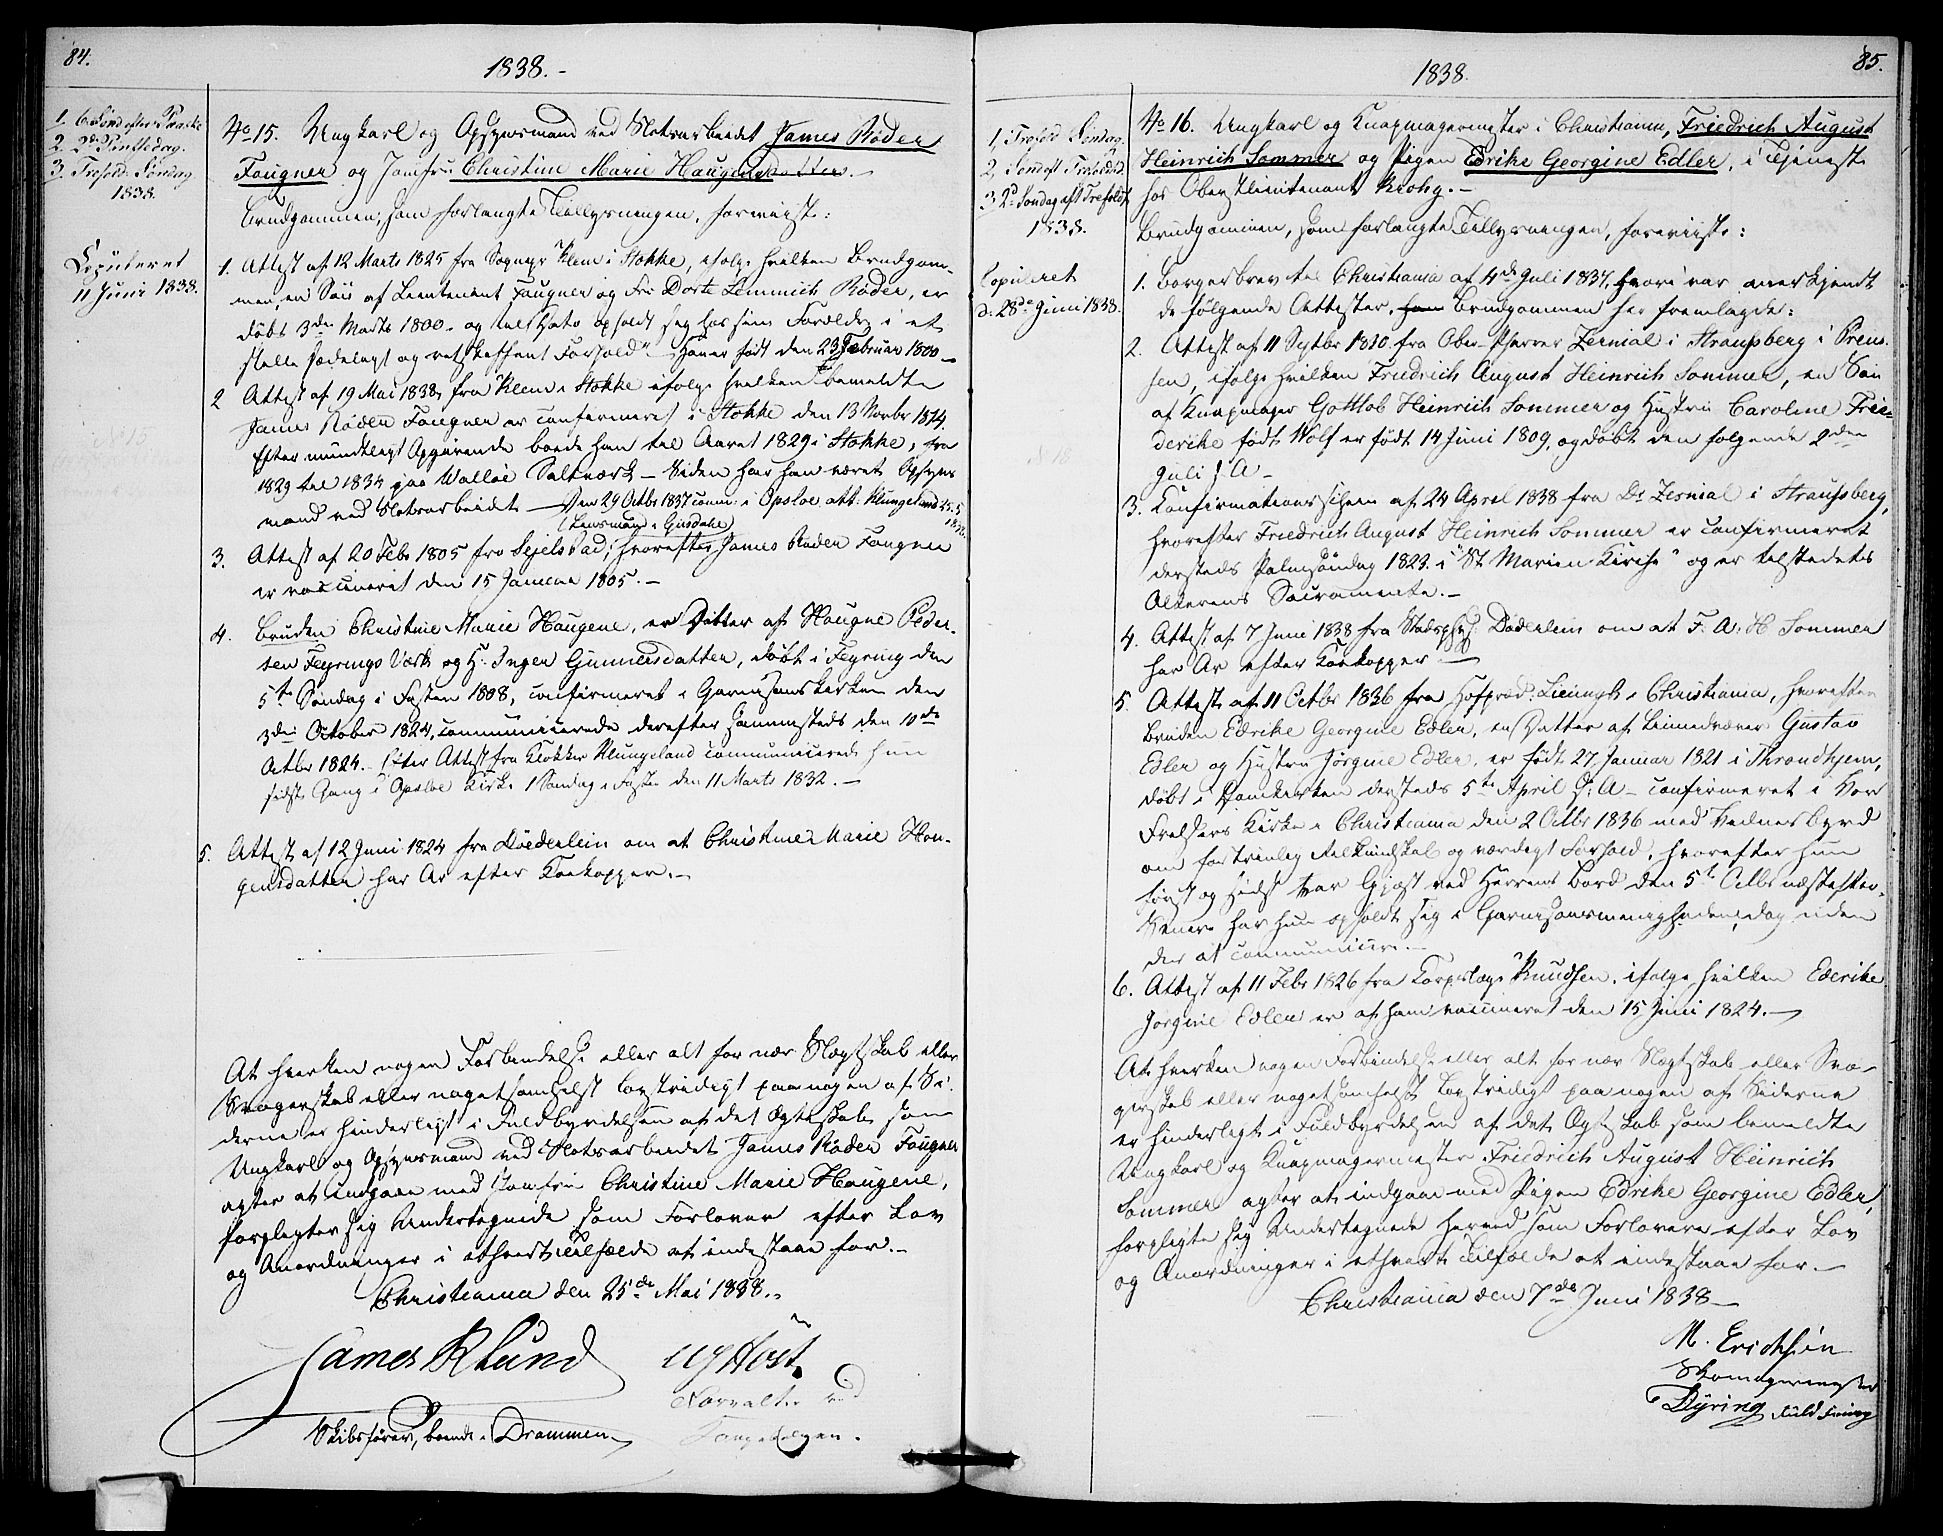 84.
1838.-
1. 6 Sønd efter Paaske
2. 2den Pintsedag.
3. Trefold. Søndag
1838.
Copuleret
11 Juni 1838.
No 15. Ungkarl og Opsynsmand ved Slotsarbeidet James Røder
Faugner og Jomfru Christine Marie Haugensdatter.-
Brudgommen, som forlangte Tillysningen, foreviiste:
1. Attest af 12 Marts 1825 fra Sognepr Klem i Stokke, ifølge hvilken Brudgom-
men, en Søn af Lieutenant Faugner og Fru Dorte Lemmich Røder, er
døbt 3de Marts 1800 - og til Dato opholdt sig hos sine Forældre i et
stille sædeligt og retskaffent Forhold". Han er født den 23 Februar 1800 -
2 Attest af 19 Mai 1838, fra Klem i Stokke ifølge hvilken bemeldte
James Röder Faugner er confirmeret i Stokke den 13 Novbr 1814.
Efter mundtligt Opgivende boede han til Aaret 1829 i Stokke, fra
1829 til 1834 paa Walløe Saltværk - Siden har han været Opsyns
mand ved Slotsarbeidet - Den 29 Octbr 1837 comm: i Opsloe att: Klungeland 25.5
1838.
(Lensmand i Giusdahl)
3. Attest af 20 Febr 1805 fra Sejelstad; hvorefter James Røder Faugner
er vaccineret den 15 Januar 1805.-
4. Bruden Christine Marie Haugene, er Datter af Haugne Peder-
sen Feyrings Værk og H. Inger Gunnersdatter, døbt i Feyring den
5te Søndag i Fasten 1808, confirmeret i Garnisonskirken den
3die October 1824, communicerede derefter sammesteds den 10de
Octbr 1824. Efter Attest fra Klokker Klungeland communicerede hun
sidste Gang i Opsloe Kirke 1 Søndag i Faste den 11 Marts 1832.-
5. Attest af 12 Juni 1824 fra Døderlein om at Christine Marie Hou-
gensdatter har Ar efter Koekopper.-
At hverken nogen Forbindelse eller alt for nær Slægtskab eller
Svogerskab eller nogetsomhelst lovstridigt paa nogen af Si-
derne er hinderligt i Fuldbyrdelsen af det Ægteskab som
Ungkarl og Opsynsmand ved Slotsarbeidet James Røder Faugner
agter at indgaae med Jomfru Christine Marie Haugene,
forpligter sig Undertegnede som Forlover efter Lov
og Anordninger i ethvert Tilfælde at indestaae for.-
Christiania den 25de Mai 1838.-
James R Lund
Høst
Skibsfører, boende i Drammen
Forvalter ved
85.
1838.
1. Trefold. Søndag.
2. Sønd eft Trefoldd.
3 2d Søndag eft Trefoldt
1838.
Copuleret
d: 28de Juni 1838.
No 16. Ungkarl og Knapmagermester i Christiania, Friedrich August
Heinrich Sommer og Pigen Edrike Georgine Edler, i Tjeneste
hos Oberstlieutenant Krohg.-
Brudgommen, som forlangte Tillysningen, foreviiste:
1. Borgerbrev til Christiania af 4de Juli 1837, hvori var anerkjendt
de følgende Attester, som Brudgommen her fremlagde:
2. Attest af 11 Septbr 1810 fra Ober-Pfarrer Zernial i Straussberg i Preus-
sen, ifølge hvilken Friedrich August Heinrich Sommer, en Søn
af Knapmager Gottlob Heinrich Sommer og Hustru Caroline Frie-
dericke født Wolf er født 14 Juni 1809, og døbt den følgende 2den
Juli s. A -
3. Confirmationsschein af 24 April 1838 fra Dr Zernial i Straussberg,
hvorefter Friedrich August Heinrich Sommer er confirmeret
dersteds Palmsøndag 1823. i "St Marien Kirche" og er tilstedetes
Alterens Sacramente.-
4. Attest af 7 Juni 1838 fra Stadsphys: Døderlein om at F. A. H Sommer
har Ar efter Koekopper -
5 Attest af 11 Octbr 1836 fra Hofpræd. i Christiania, hvorefter
Bruden Edrike Georgine Edler, en Datter af Linnedvæver Gustav
Edler og Hustru Jørgine Edler, er født 27 Januar 1821 i Throndhjem,
døbt i Domkirken dersteds 5te April s: A - confirmeret i Vor
Frelsers Kirke i Christiania den 2 Octbr 1836 med Vidnesbyrd
om fortrinlig Kundskab og værdigt Forhold, hvorefter hun
først og sidst var Gjæst ved Herrens Bord den 5te Octbr næstefter.
Senere har hun opholdt sig i Garnisonsmenigheden, dog uden
der at communicere.-
6. Attest af 11 Febr 1826 fra Corpslæge Knudsen, ifølge hvilken Ederike
Jørgine Edler er af ham vaccineret den 15 Juni 1824.-
At hverken nogen Forbindelse eller alt for nær Slægtskab eller Svo-
gerskab eller nogetsomhelst lovstridigt paa nogen af Siderne
er hinderligt i Fuldbyrdelsen af det Ægteskab som bemeldte
Ungkarl og Knapmagermester Friedrich August Heinrich
Sommer agter at indgaae med Pigen Edrike Georgine Edler,
forpligte sig Undertegnede herved som Forlovere efter Lov
og Anordninger i ethvert Tilfælde at indestaae for.-
Christiania den 7de Juni 1838 -
M. Erichsen
Skomagermester
Dyring